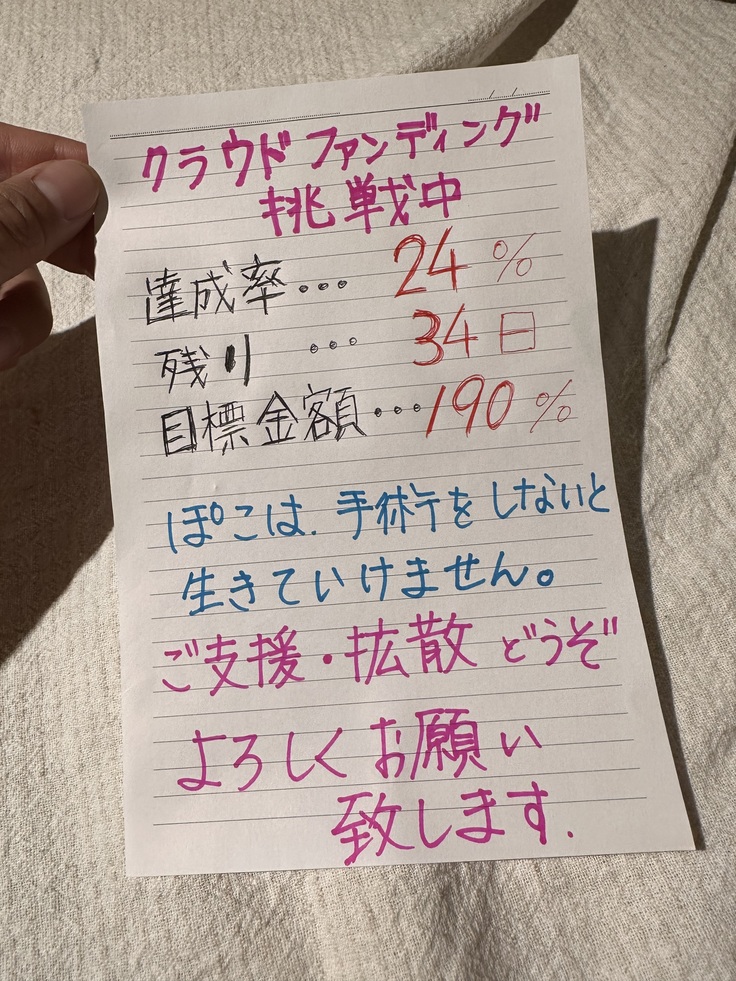 クラウドファンディング
挑戦中
達成率・・・ 24%
残り ・・・ 34日
目標金額・・・190%
ぽこは、手術をしないと
生きていけません。
ご支援・拡散どうぞ
よろしくお願い
致します.